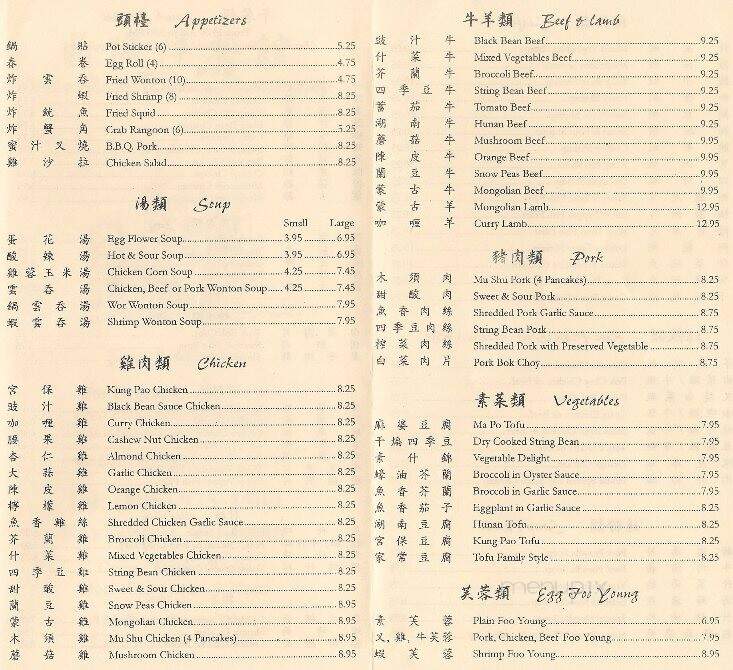 頭檯 Appetizers
鍋貼 Pot Sticker (6) 5.25
春卷 Egg Roll (4) 4.75
炸雲吞 Fried Wonton (10) 4.75
炸蝦 Fried Shrimp (8) 8.25
炸魷魚 Fried Squid 8.25
炸蟹角 Crab Rangoon (6) 5.25
蜜汁叉燒 B.B.Q. Pork 8.25
雞沙拉 Chicken Salad 8.25
湯類 Soup
Small Large
蛋花湯 Egg Flower Soup 3.95 6.95
酸辣湯 Hot & Sour Soup 3.95 6.95
雞蓉玉米湯 Chicken Corn Soup 4.25 7.45
雲吞湯 Chicken, Beef or Pork Wonton Soup 4.25 7.45
鍋雲吞湯 Wor Wonton Soup 7.95
蝦雲吞湯 Shrimp Wonton Soup 7.95
雞肉類 Chicken
宮保雞 Kung Pao Chicken 8.25
豉汁雞 Black Bean Sauce Chicken 8.25
咖喱雞 Curry Chicken 8.25
腰果雞 Cashew Nut Chicken 8.25
杏仁雞 Almond Chicken 8.25
大蒜雞 Garlic Chicken 8.25
陳皮雞 Orange Chicken 8.25
檸檬雞 Lemon Chicken 8.25
魚香雞絲 Shredded Chicken Garlic Sauce 8.25
芥蘭雞 Broccoli Chicken 8.25
什菜雞 Mixed Vegetables Chicken 8.25
四季豆雞 String Bean Chicken 8.25
甜酸雞 Sweet & Sour Chicken 8.25
蘭豆雞 Snow Peas Chicken 8.95
蒙古雞 Mongolian Chicken 8.95
木須雞 Mu Shu Chicken (4 Pancakes) 8.95
蘑菇雞 Mushroom Chicken 8.95
牛羊類 Beef & Lamb
豉汁牛 Black Bean Beef 9.25
什菜牛 Mixed Vegetables Beef 9.25
芥蘭牛 Broccoli Beef 9.25
四季豆牛 String Bean Beef 9.25
蕃茄牛 Tomato Beef 9.25
湖南牛 Hunan Beef 9.25
蘑菇牛 Mushroom Beef 9.95
陳皮牛 Orange Beef 9.95
蘭豆牛 Snow Peas Beef 9.95
蒙古牛 Mongolian Beef 9.95
蒙古羊 Mongolian Lamb 12.95
咖喱羊 Curry Lamb 12.95
豬肉類 Pork
木須肉 Mu Shu Pork (4 Pancakes) 8.25
甜酸肉 Sweet & Sour Pork 8.25
魚香肉絲 Shredded Pork Garlic Sauce 8.75
四季豆肉絲 String Bean Pork 8.75
榨菜肉絲 Shredded Pork with Preserved Vegetable 8.75
白菜肉片 Pork Bok Choy 8.75
素菜類 Vegetables
麻婆豆腐 Ma Po Tofu 7.95
干燒四季豆 Dry Cooked String Bean 7.95
素什錦 Vegetable Delight 7.95
蠔油芥蘭 Broccoli in Oyster Sauce 7.95
魚香芥蘭 Broccoli in Garlic Sauce 7.95
魚香茄子 Eggplant in Garlic Sauce 8.25
湖南豆腐 Hunan Tofu 8.25
宮保豆腐 Kung Pao Tofu 8.25
家常豆腐 Tofu Family Style 8.25
芙蓉類 Egg Foo Young
素芙蓉 Plain Foo Young 6.95
叉,雞,牛芙蓉 Pork, Chicken, Beef Foo Young 7.95
蝦芙蓉 Shrimp Foo Young 8.95